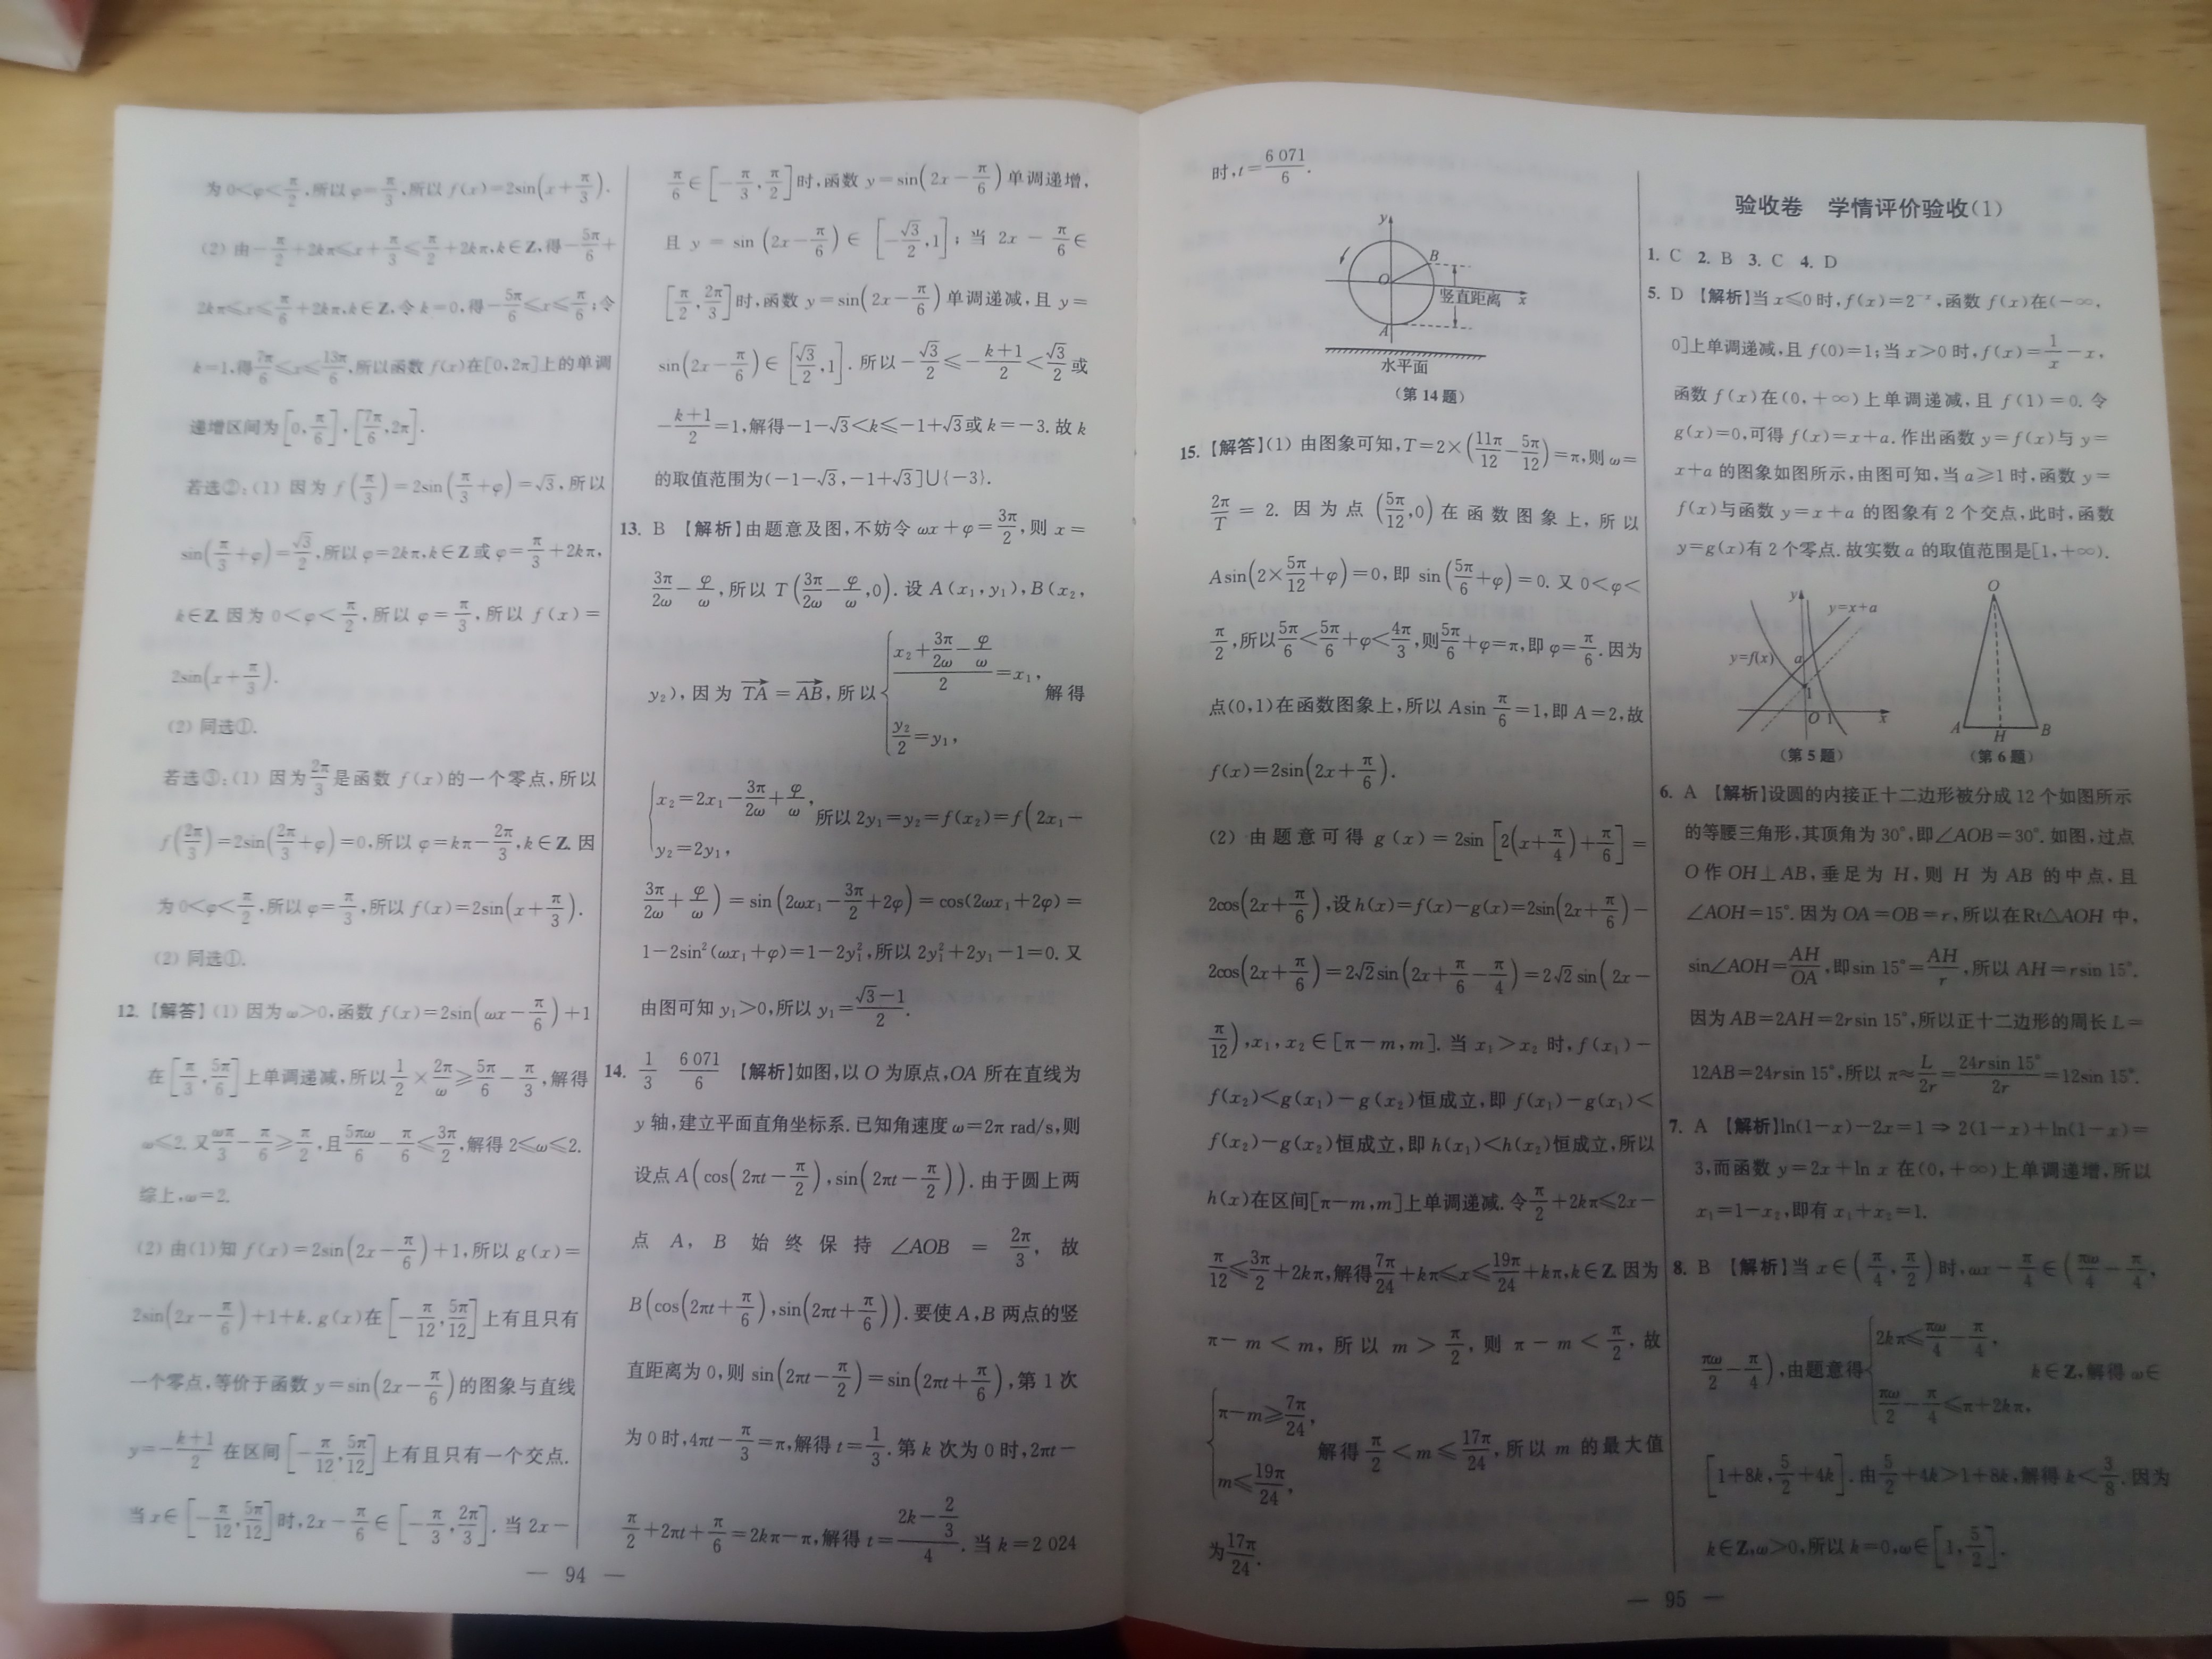 为 0<φ<π/2,所以 φ=π/3,所以 f(x)=2sin(x+π/3).
(2) 由-π/2+2kπ≤x+π/3≤π/2+2kπ,k∈Z,得-5π/6+
2kπ≤x≤π/6+2kπ,k∈Z,令 k=0,得-5π/6≤x≤π/6;令
k=1,得7π/6≤x≤13π/6,所以函数 f(x)在[0,2π]上的单调
递增区间为[0,π/6],[7π/6,2π].
若选②:(1) 因为 f(π/3)=2sin(π/3+φ)=√3,所以
sin(π/3+φ)=√3/2,所以 φ=2kπ,k∈Z 或 φ=π/3+2kπ,
k∈Z. 因为 0<φ<π/2,所以 φ=π/3,所以 f(x)=
2sin(x+π/3).
(2) 同选①.
若选③:(1) 因为2π/3是函数 f(x)的一个零点,所以
f(2π/3)=2sin(2π/3+φ)=0,所以 φ=kπ-2π/3,k∈Z. 因
为 0<φ<π/2,所以 φ=π/3,所以 f(x)=2sin(x+π/3).
(2) 同选①.
12. 【解答】(1) 因为 ω>0,函数 f(x)=2sin(ωx-π/6)+1
在[π/3,5π/6]上单调递减,所以1/2×2π/ω≥5π/6-π/3,解得
ω≤2. 又ωπ/3-π/6≥π/2,且5πω/6-π/6≤3π/2,解得 2≤ω≤2.
综上,ω=2.
(2) 由(1)知 f(x)=2sin(2x-π/6)+1,所以 g(x)=
2sin(2x-π/6)+1+k. g(x)在[-π/12,5π/12]上有且只有
一个零点,等价于函数 y=sin(2x-π/6)的图象与直线
y=-(k+1)/2 在区间[-π/12,5π/12]上有且只有一个交点.
当 x∈[-π/12,5π/12]时,2x-π/6∈[-π/3,2π/3]. 当 2x-
— 94 —
π/6∈[-π/3,π/2]时,函数 y=sin(2x-π/6)单调递增,
且 y=sin(2x-π/6)∈[-√3/2,1];当 2x-π/6∈
[π/2,2π/3]时,函数 y=sin(2x-π/6)单调递减,且 y=
sin(2x-π/6)∈[√3/2,1]. 所以-√3/2≤-(k+1)/2<√3/2或
-(k+1)/2=1,解得-1-√3<k≤-1+√3或 k=-3. 故 k
的取值范围为(-1-√3,-1+√3]∪{-3}.
13. B 【解析】由题意及图,不妨令 ωx+φ=3π/2,则 x=
3π/2ω-φ/ω,所以 T(3π/2ω-φ/ω,0). 设 A(x₁,y₁),B(x₂,
y₂),因为 TA→=AB→,所以{(x₂+3π/2ω-φ/ω)/2=x₁, y₂/2=y₁, 解得
{x₂=2x₁-3π/2ω+φ/ω, y₂=2y₁, 所以 2y₁=y₂=f(x₂)=f(2x₁-
3π/2ω+φ/ω)=sin(2ωx₁-3π/2+2φ)=cos(2ωx₁+2φ)=
1-2sin²(ωx₁+φ)=1-2y₁²,所以 2y₁²+2y₁-1=0. 又
由图可知 y₁>0,所以 y₁=(√3-1)/2.
14. 1/3 6 071/6 【解析】如图,以 O 为原点,OA 所在直线为
y 轴,建立平面直角坐标系. 已知角速度 ω=2π rad/s,则
设点 A(cos(2πt-π/2),sin(2πt-π/2)). 由于圆上两
点 A, B 始终保持 ∠AOB=2π/3, 故
B(cos(2πt+π/6),sin(2πt+π/6)). 要使 A,B 两点的竖
直距离为 0,则 sin(2πt-π/2)=sin(2πt+π/6),第 1 次
为 0 时,4πt-π/3=π,解得 t=1/3. 第 k 次为 0 时,2πt-
π/2+2πt+π/6=2kπ-π,解得 t=(2k-2/3)/4. 当 k=2 024
时,t=6 071/6.
y
B
O
竖直距离
x
A
水平面
(第 14 题)
15. 【解答】(1) 由图象可知,T=2×(11π/12-5π/12)=π,则 ω=
2π/T=2. 因为点(5π/12,0)在函数图象上,所以
Asin(2×5π/12+φ)=0,即 sin(5π/6+φ)=0. 又 0<φ<
π/2,所以5π/6<5π/6+φ<4π/3,则5π/6+φ=π,即 φ=π/6. 因为
点(0,1)在函数图象上,所以 Asin π/6=1,即 A=2,故
f(x)=2sin(2x+π/6).
(2) 由题意可得 g(x)=2sin[2(x+π/4)+π/6]=
2cos(2x+π/6),设 h(x)=f(x)-g(x)=2sin(2x+π/6)-
2cos(2x+π/6)=2√2sin(2x+π/6-π/4)=2√2sin(2x-
π/12),x₁,x₂∈[π-m,m]. 当 x₁>x₂ 时,f(x₁)-
f(x₂)<g(x₁)-g(x₂)恒成立,即 f(x₁)-g(x₁)<
f(x₂)-g(x₂)恒成立,即 h(x₁)<h(x₂)恒成立,所以
h(x)在区间[π-m,m]上单调递减. 令π/2+2kπ≤2x-
π/12≤3π/2+2kπ,解得7π/24+kπ≤x≤19π/24+kπ,k∈Z. 因为
π-m<m,所以 m>π/2,则 π-m<π/2,故
{π-m≥7π/24, m≤19π/24, 解得π/2<m≤17π/24,所以 m 的最大值
为17π/24.
验收卷 学情评价验收(1)
1. C 2. B 3. C 4. D
5. D 【解析】当 x≤0 时,f(x)=2⁻ˣ,函数 f(x)在(-∞,
0]上单调递减,且 f(0)=1;当 x>0 时,f(x)=1/x-x,
函数 f(x)在(0,+∞)上单调递减,且 f(1)=0. 令
g(x)=0,可得 f(x)=x+a. 作出函数 y=f(x)与 y=
x+a 的图象如图所示,由图可知,当 a≥1 时,函数 y=
f(x)与函数 y=x+a 的图象有 2 个交点,此时,函数
y=g(x)有 2 个零点. 故实数 a 的取值范围是[1,+∞).
y
y=x+a
y=f(x)
a
1
O 1
x
(第 5 题)
O
A
H
B
(第 6 题)
6. A 【解析】设圆的内接正十二边形被分成 12 个如图所示
的等腰三角形,其顶角为 30°,即∠AOB=30°. 如图,过点
O 作 OH⊥AB,垂足为 H,则 H 为 AB 的中点,且
∠AOH=15°. 因为 OA=OB=r,所以在Rt△AOH 中,
sin∠AOH=AH/OA,即sin 15°=AH/r,所以 AH=rsin 15°.
因为 AB=2AH=2rsin 15°,所以正十二边形的周长 L=
12AB=24rsin 15°,所以 π≈L/2r=24rsin 15°/2r=12sin 15°.
7. A 【解析】ln(1-x)-2x=1⇒2(1-x)+ln(1-x)=
3,而函数 y=2x+ln x 在(0,+∞)上单调递增,所以
x₁=1-x₂,即有 x₁+x₂=1.
8. B 【解析】当 x∈(π/4,π/2)时,ωx-π/4∈(πω/4-π/4,
πω/2-π/4),由题意得{2kπ≤πω/4-π/4, πω/2-π/4≤π+2kπ, k∈Z,解得 ω∈
[1+8k,5/2+4k]. 由5/2+4k>1+8k,解得 k<3/8. 因为
k∈Z,ω>0,所以 k=0,ω∈[1,5/2].
— 95 —